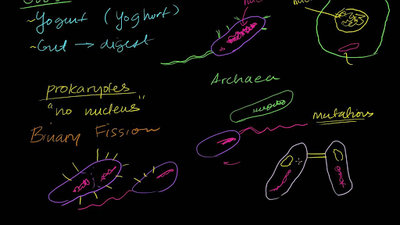 ~Yogurt (Yoghurt)
~Gut → digest
Archaea
prokaryotes
"no nucleus"
mutations
Binary Fission